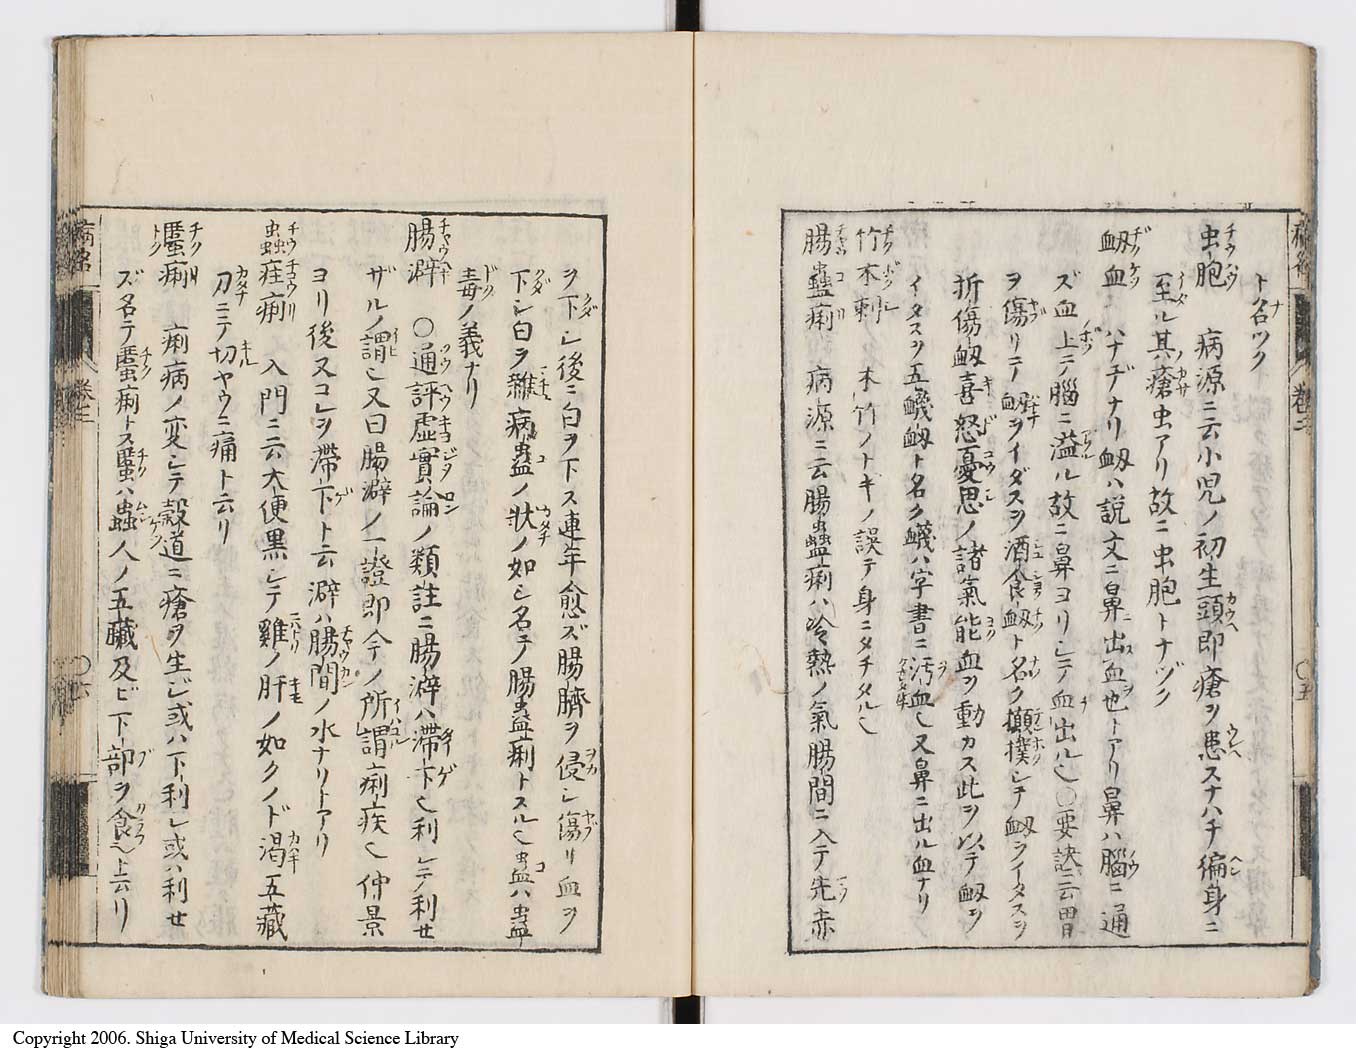 ト名ツク
虫胞 病源ニ云小児ノ初生頭即瘡ヲ患スナハチ徧身ニ
至ル其瘡虫アリ故ニ虫胞トナヅク
衂血 ハナヂナリ衂ハ説文ニ鼻出血也トアリ鼻ハ腦ニ通
ズ血上テ腦ニ溢ル故ニ鼻ヨリシテ血出ル也○要訣云胃
ヲ傷リテ衂ヲイダスヲ酒食衂ト名ク攧撲シテ衂ヲイタスヲ
折傷衂喜怒憂思ノ諸氣能血ヲ動カス此ヲ以テ衂ヲ
イタスヲ五衊衂ト名ク衊ハ字書ニ汚血也又鼻ニ出ル血ナリ
竹木刺 木竹ノトギノ誤テ身ニタチタル也
腸蠱痢 病源ニ云腸蠱痢ハ冷熱ノ氣腸間ニ入テ先赤
病名 卷二 ○五
ヲ下シ後ニ白ヲ下ス連年愈ズ腸臍ヲ侵シ傷リ血ヲ
下シ白ヲ雜病蠱ノ狀ノ如シ名テ腸蠱痢トスル也蠱ハ蟲
毒ノ義ナリ
腸澼 ○通評虛實論ノ類註ニ腸澼ハ滯下也利シテ利せ
ザルノ謂也又曰腸澼ノ一證即今ノ所謂痢疾也仲景
ヨリ後又コレヲ滯下ト云澼ハ腸間ノ水ナリトアリ
蟲疰痢 入門ニ云大便黒シテ雞ノ肝ノ如クノド渇五藏
刀ニテ切ヤウニ痛ト云リ
䘌痢 痢病ノ変シテ穀道ニ瘡ヲ生ジ或ハ下利シ或ハ利せ
ズ名テ䘌痢トス䘌ハ蟲人ノ五臟及ビ下部ヲ食フ也ト云リ
病名 卷二 ○六
Copyright 2006. Shiga University of Medical Science Library